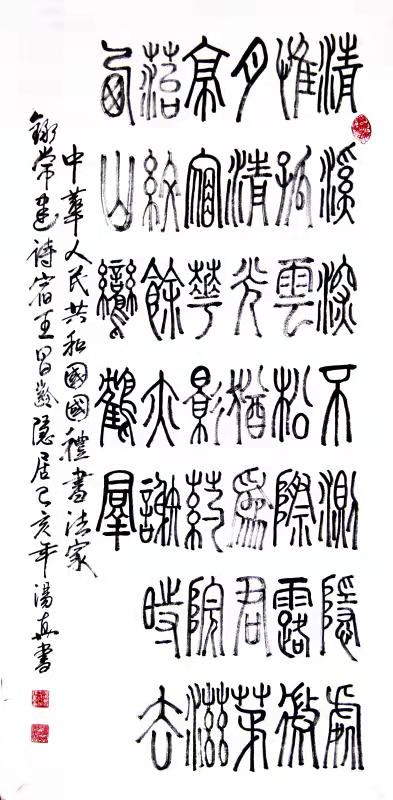 清溪深不測隱處
惟孤雲松際露微
月清光猶為君茅
亭宿華影藥院滋
菭紋餘亦謝時去
西山鸞鶴羣
中華人民共和國國禮書法家
錄常建詩宿王昌齡隱居己亥年湯真書